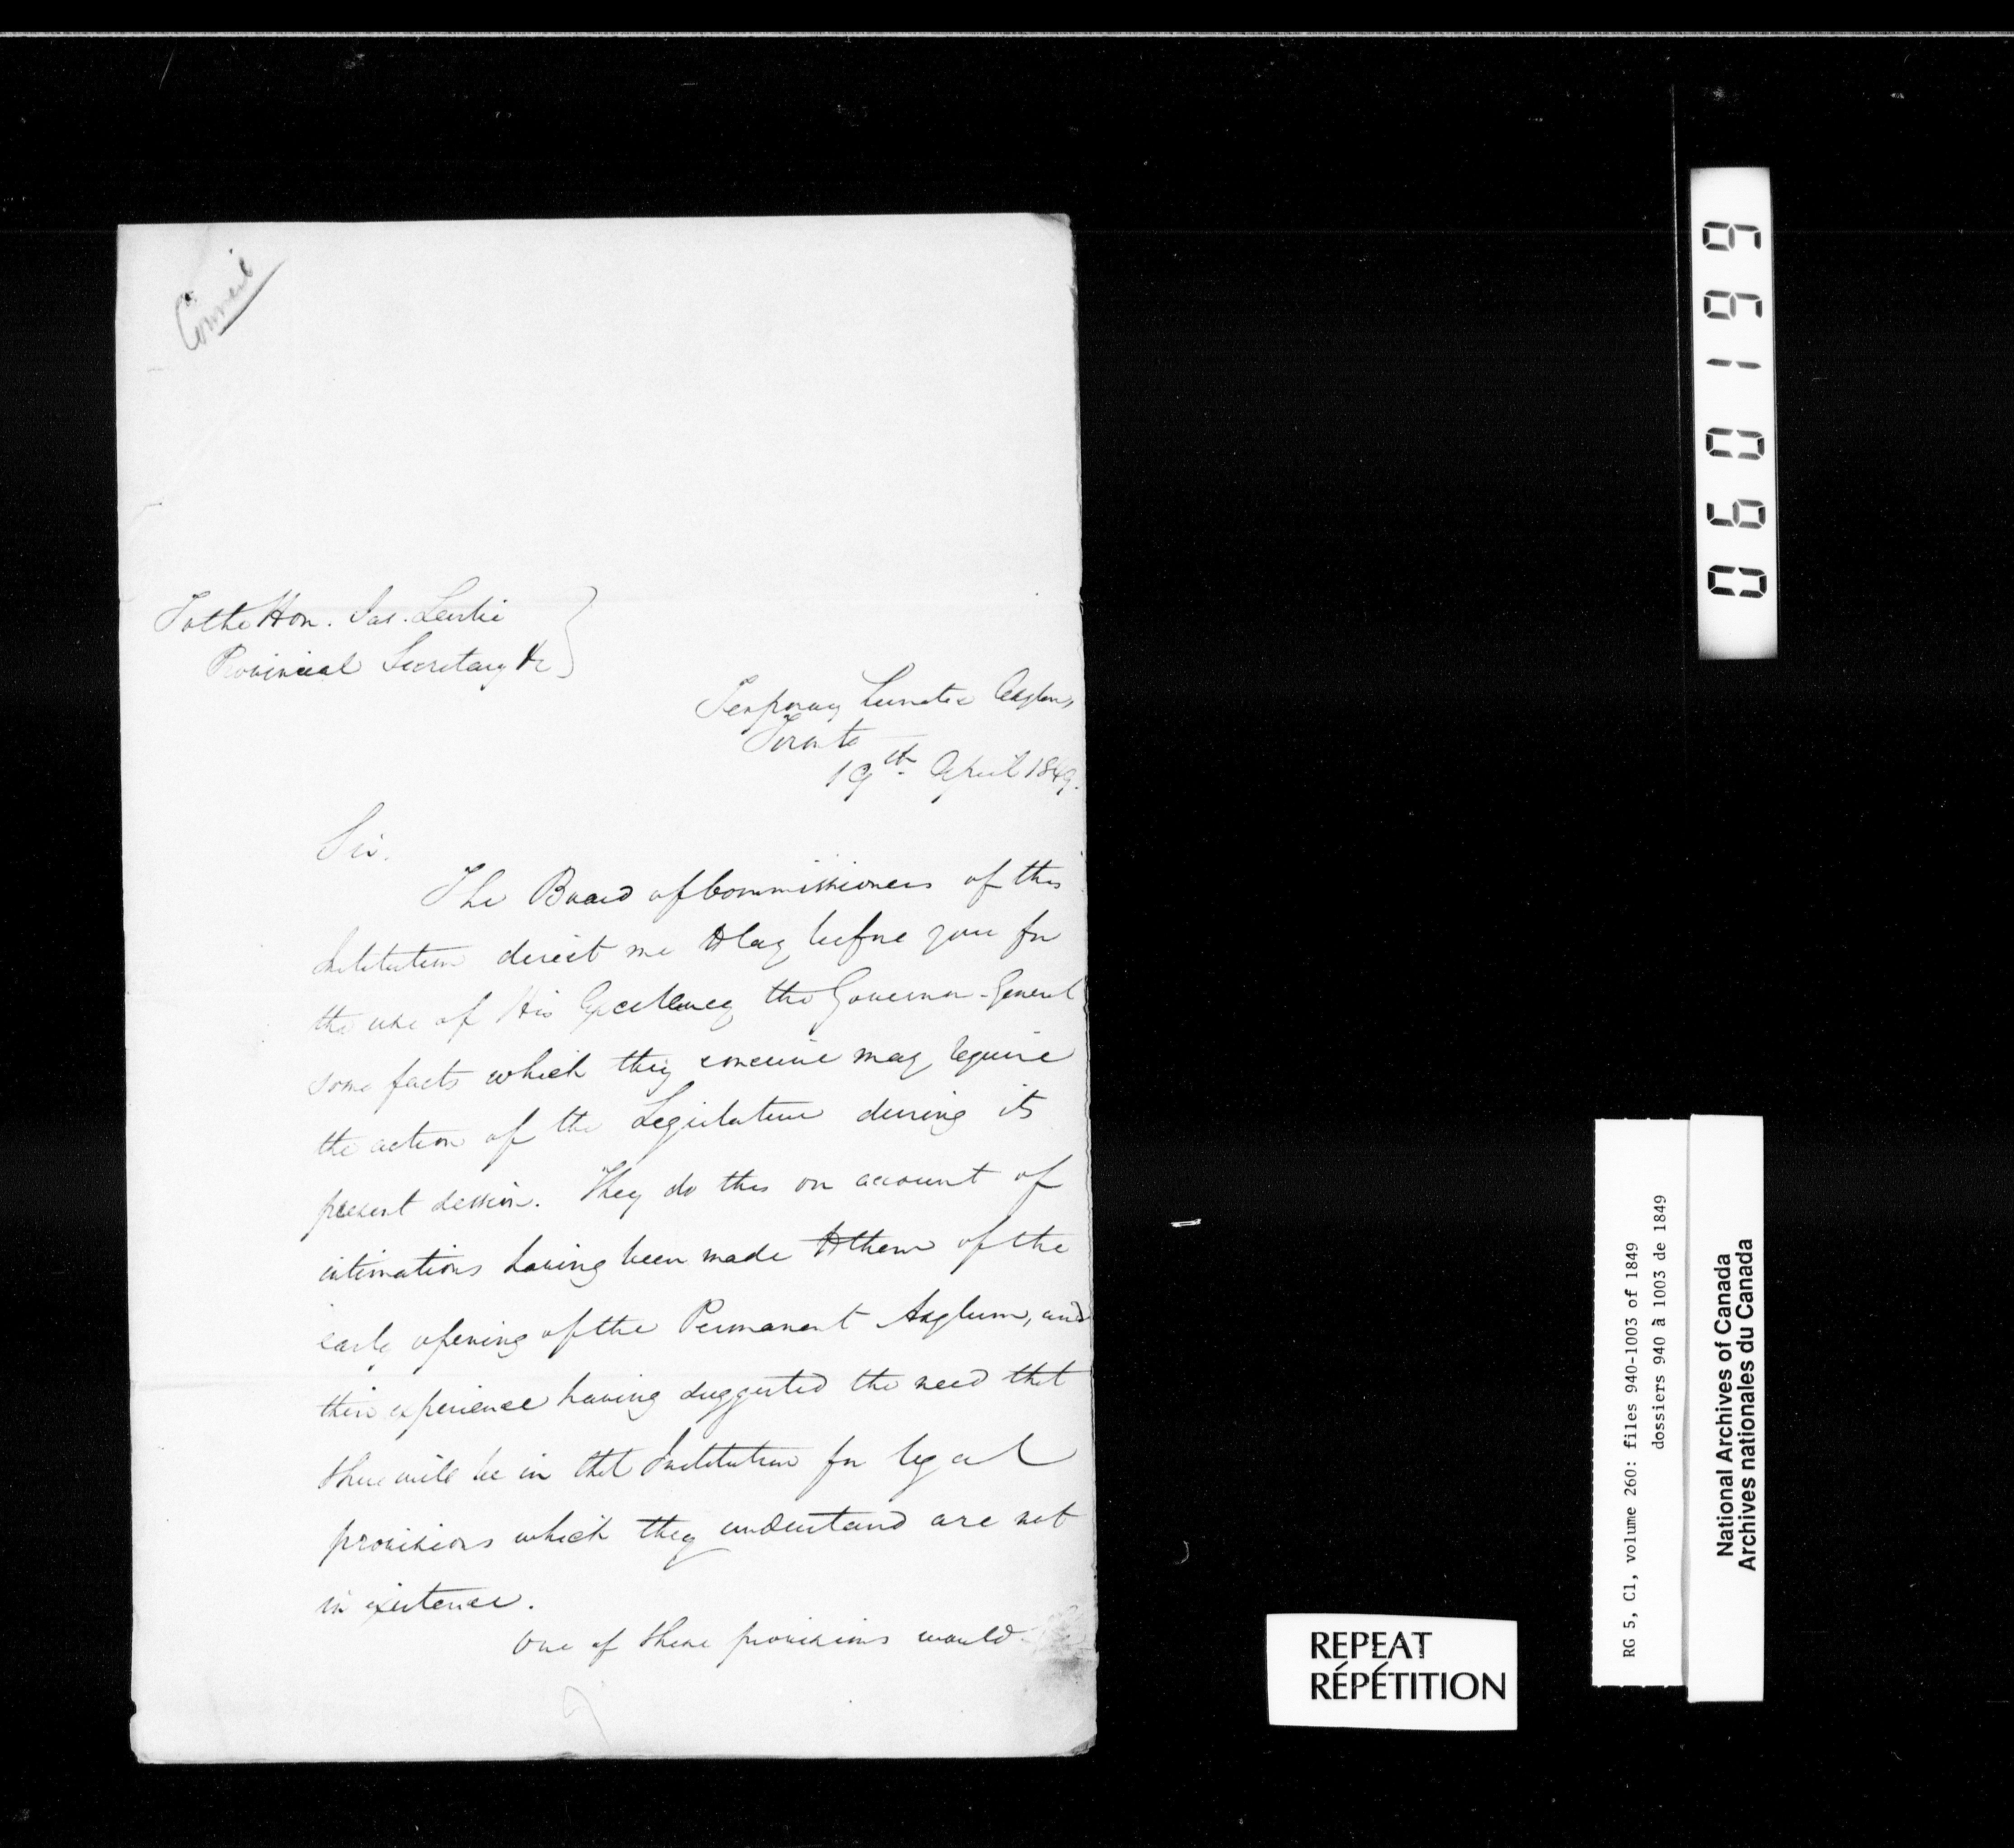 Council
To the Hon. Jas. Leslie
Provincial Secretary &c
Temporary Lunatic Asylum
Toronto
19th April 1849.
Sir.
The Board of Commissioners of this
Institution direct me to lay before you for
the use of His Excellency the Governor-General
some facts which they conceive may require
the action of the Legislature during its
present session. They do this on account of
intimations having been made to them of the
early opening of the Permanent Asylum, and
their experience having suggested the need that
there will be in that Institution for legal
provisions which they understand are not
in existence.
One of these provisions would
060199
RG 5, C1, volume 260: files 940-1003 of 1849
dossiers 940 à 1003 de 1849
National Archives of Canada
Archives nationales du Canada
REPEAT
RÉPÉTITION